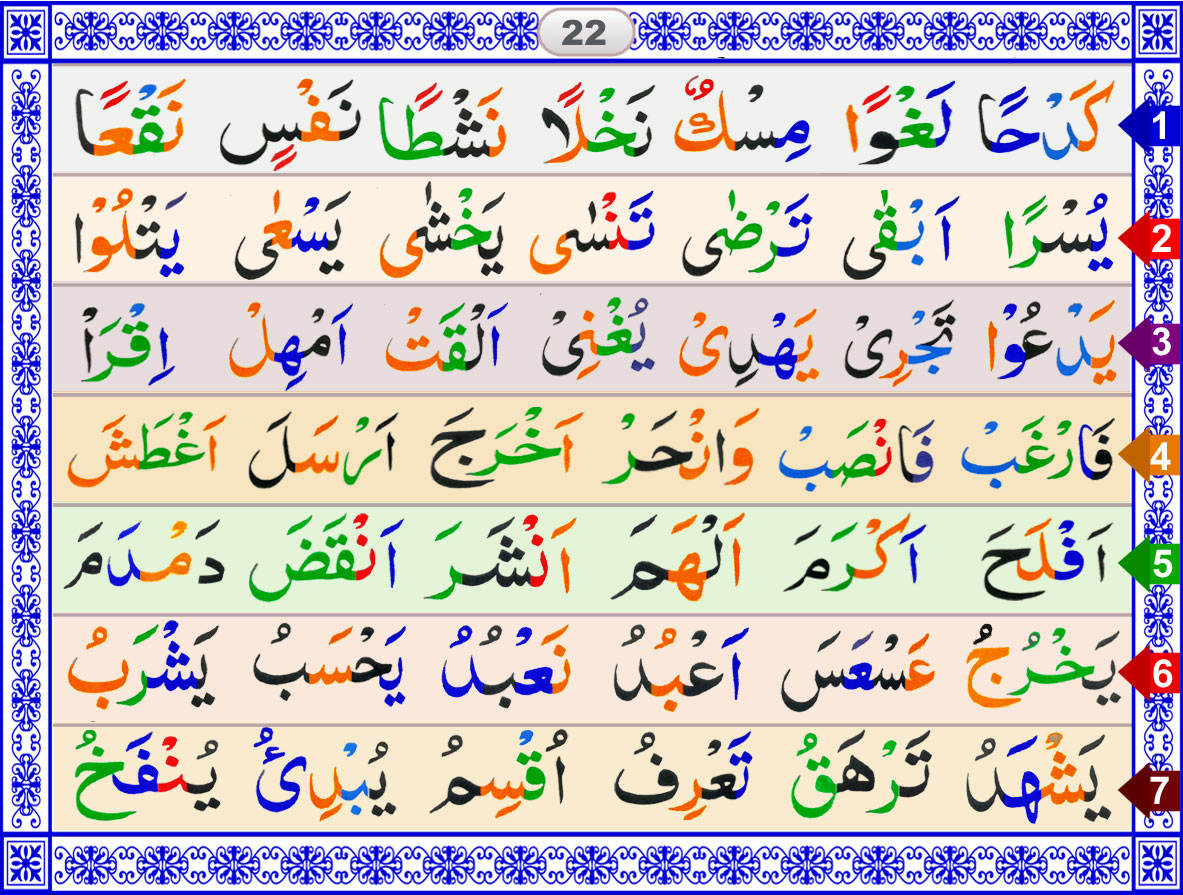 22
1 كَدْحًا لَغْوًا مِسْكٌ نَخْلًا نَشْطًا نَفْسٍ نَقْعًا
2 يُسْرًا اَبْقٰى تَرْضٰى تَنْسٰى يَخْشٰى يَسْعٰى يَتْلُوْا
3 يَدْعُوْا تَجْرِىْ يَهْدِىْ يُغْنِىْ اَلْقَتْ اَمْهِلْ اِقْرَاْ
4 فَارْغَبْ فَانْصَبْ وَانْحَرْ اَخْرَجَ اَرْسَلَ اَغْطَشَ
5 اَفْلَحَ اَكْرَمَ اَلْهَمَ اَنْشَرَ اَنْقَضَ دَمْدَمَ
6 يَخْرُجُ عَسْعَسَ اَعْبُدُ نَعْبُدُ يَحْسَبُ يَشْرَبُ
7 يَشْهَدُ تَرْهَقُ تَعْرِفُ اُقْسِمُ يُبْدِئُ يُنْفَخُ